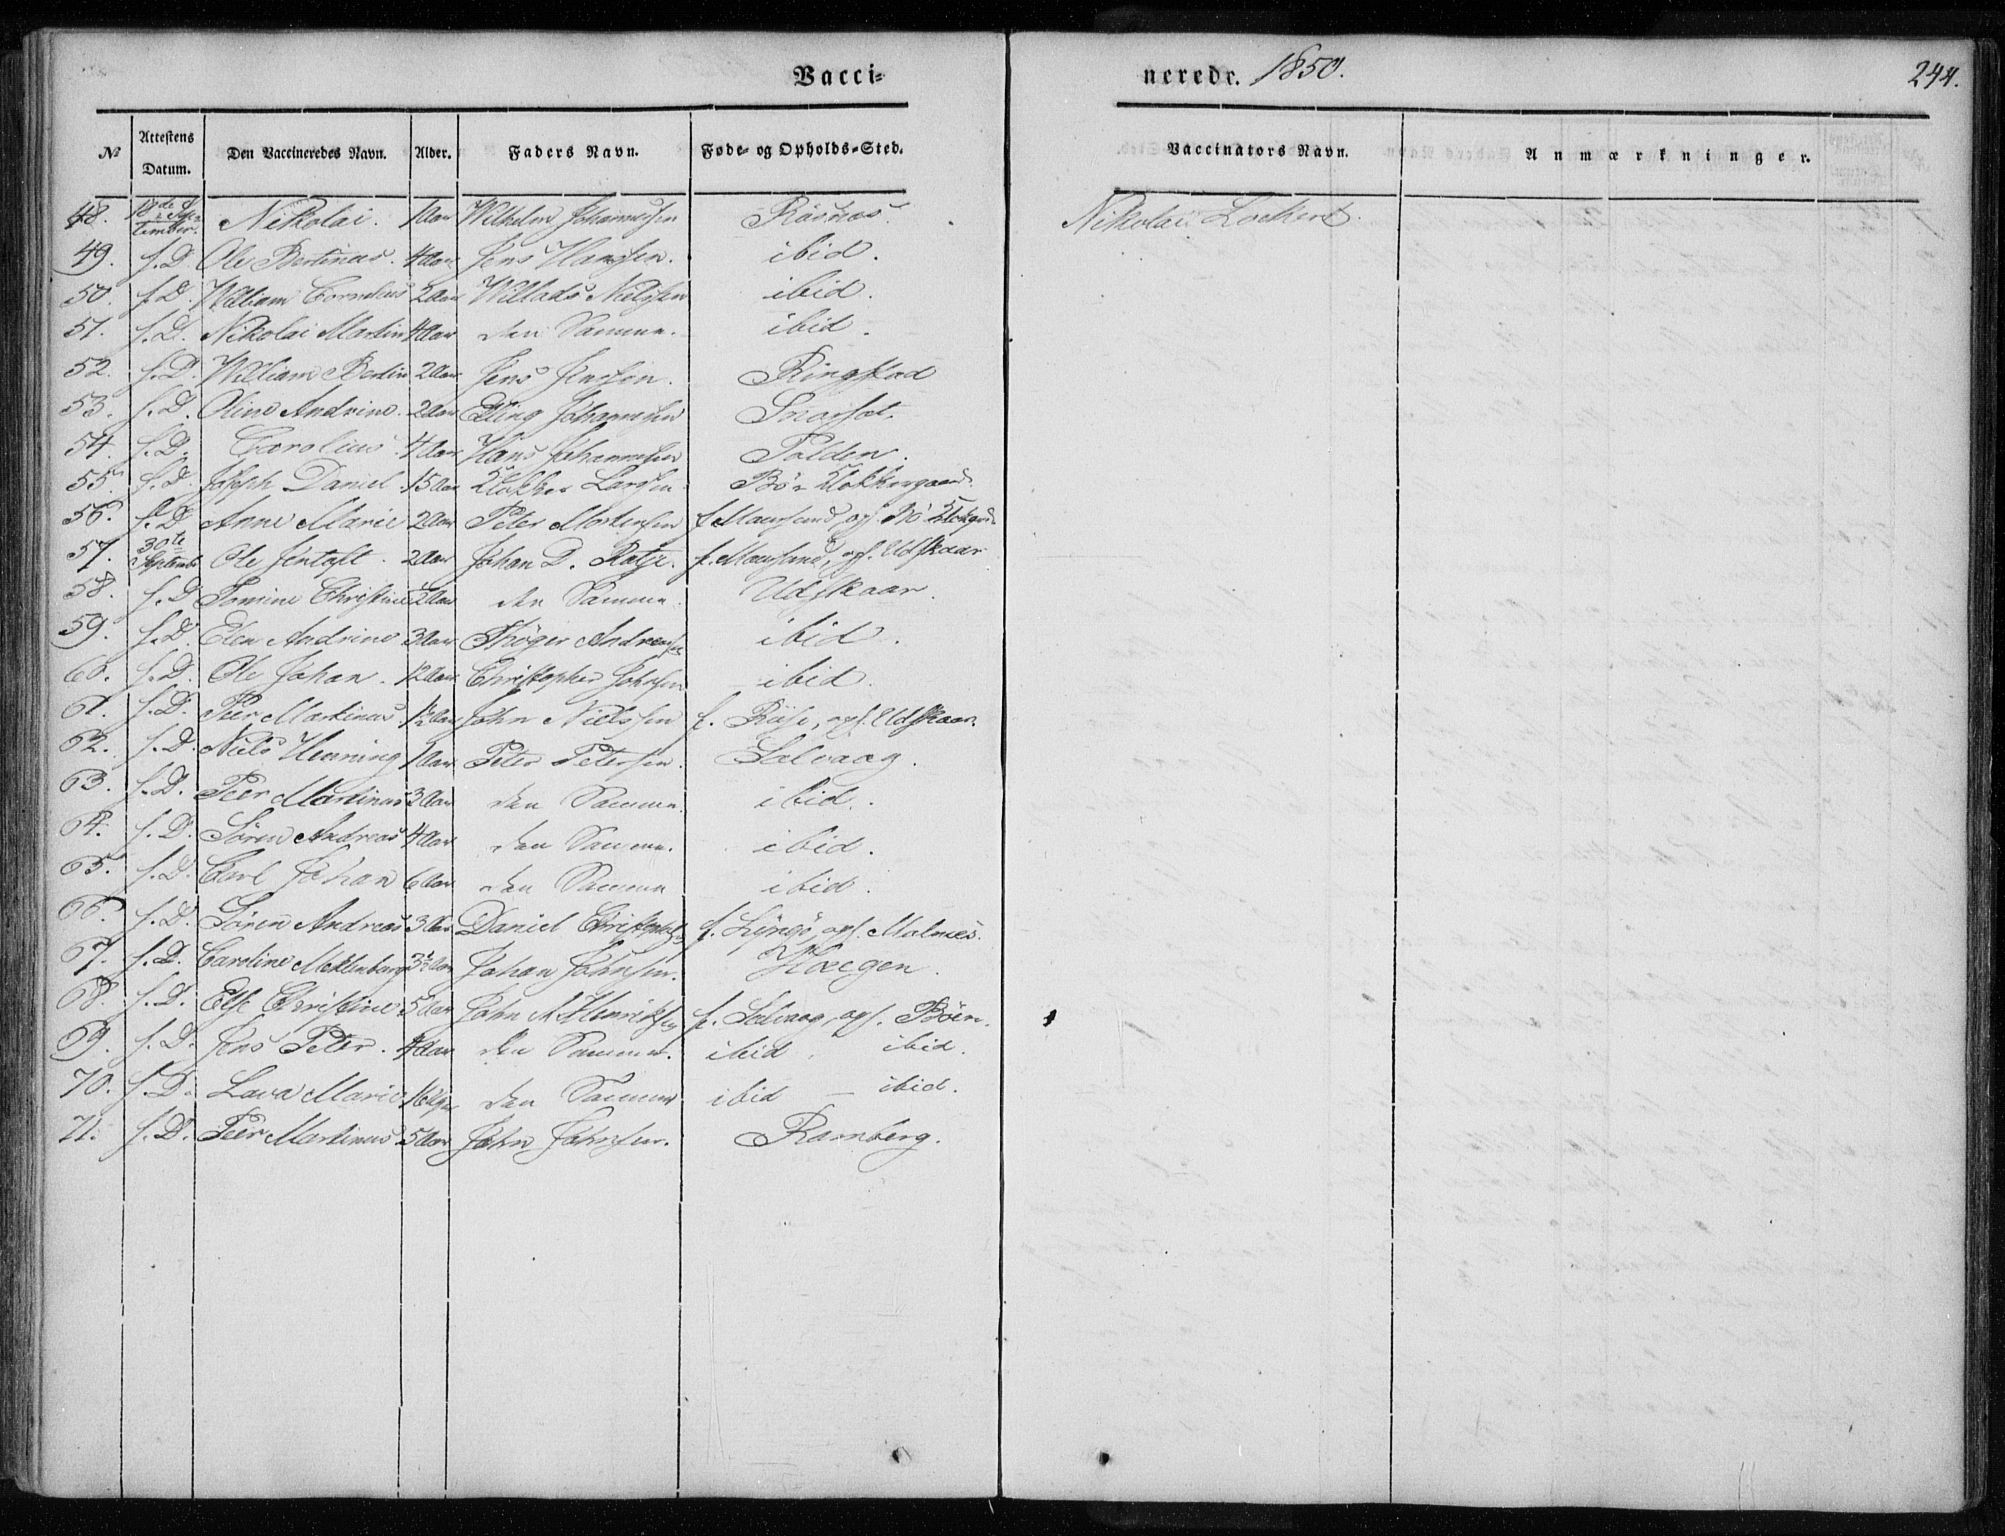 Vacci- nerede. 1850. 244.
No Attestens Datum. Den Vaccineredes Navn. Alder. Faders Navn. Føde- og Opholds-Sted. Vaccinators Navn. Anmærkninger.
48. 18de September. Nikolai. 1 Aar Wilhelm Johannessen Røsnæs. Nikolai Lockert.
49. s. D. Ole Bertinus. 4 Aar Jens Hanssen. ibid.
50. s. D. William Cornelius 2 Aar Willads Nielssen ibid.
51. s. D. Nikolai Martin 4 Aar den Samme. ibid.
52. s. D. William Bertin 2 Aar Jens Jenssen. Ringstad
53. s. D. Oline Andrine. 2 Aar Elling Johannessen
54. s. D. Carolius. 4 Aar Hans Johannessen
55. s. D. Joseph Daniel 15 Aar Klokker Larssen Bø Klokkergaard.
56. s. D. Anne Marie 2 Aar Peter Mortenssen
57. 30te September Ole Jentoft. 2 Aar Johan D. Ratje. Udskaar
58. s. D. Tomine Christine 2 Aar den Samme. Udskaar.
59. s. D. Elen Andrine 3 Aar Thøger Andreassen ibid.
60. s. D. Ole Johan. 12 Aar Christopher Johnsen ibid.
61. s. D. Peer Martinus 1½ Aar John Nielssen f. opf. Udskaar.
62. s. D. Niels Henning 1 Aar Peter Petersen. Selvaag.
63. s. D. Peer Martinus 3 Aar den Samme. ibid.
64. s. D. Søren Andreas 4 Aar den Samme. ibid.
65. s. D. Carl Johan 6 Aar den Samme ibid.
66. s. D. Søren Andreas 3 Aar Daniel f. Lyngø, opf. Malnæs.
67. s. D. Caroline Meklenburg 3½ Aar Johan Johnsen. Hougen.
68. s. D. Else Christine 5 Aar John A Henriksen f. Selvaag, opf. Bøen.
69. s. D. Jens Peter. 4 Aar den Samme. ibid. ibid.
70. s. D. Lava Marie den Samme ibid — ibid.
71. s. D. Peer Martinus 5 Aar John Johnsen. Ramberg.